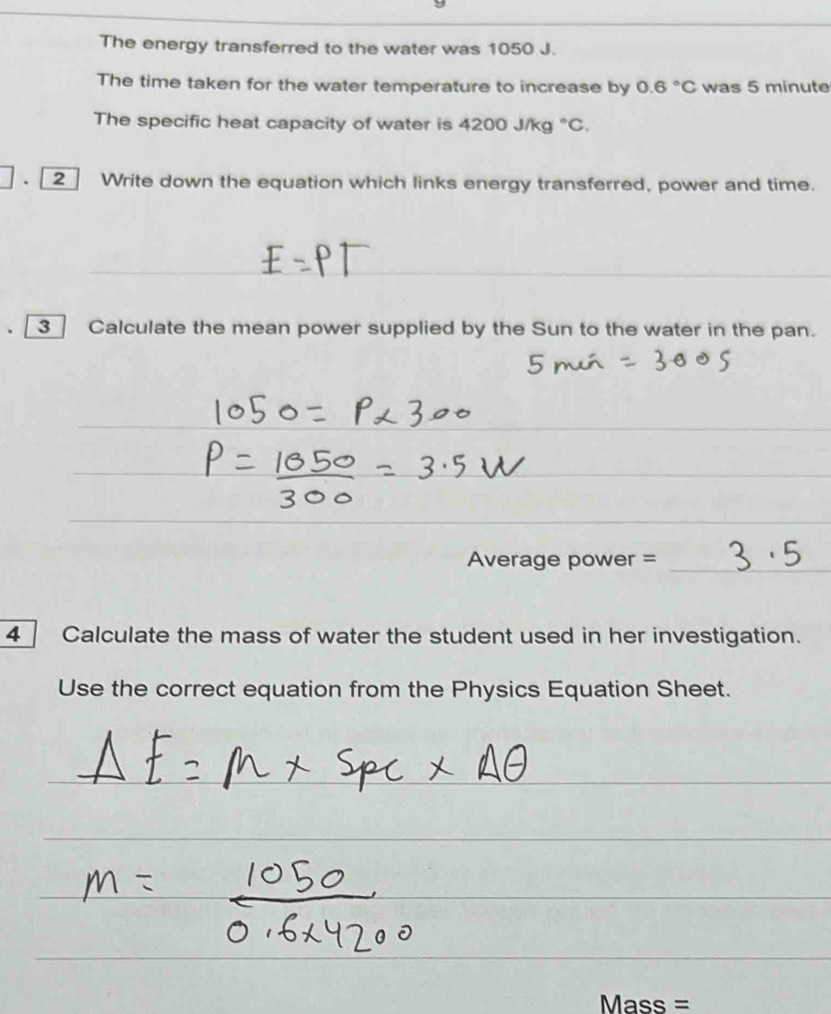 The energy transferred to the water was 1050 J.
The time taken for the water temperature to increase by 0.6 °C was 5 minute
The specific heat capacity of water is 4200 J/kg °C.
. 2 Write down the equation which links energy transferred, power and time.
E = PT
. 3 Calculate the mean power supplied by the Sun to the water in the pan.
5 min = 300s
1050 = P x 300
P = 1050/300 = 3.5 W
Average power = 3.5
4 Calculate the mass of water the student used in her investigation.
Use the correct equation from the Physics Equation Sheet.
Δ E = m x Spc x Δθ
m = 1050/0.6x4200
Mass =